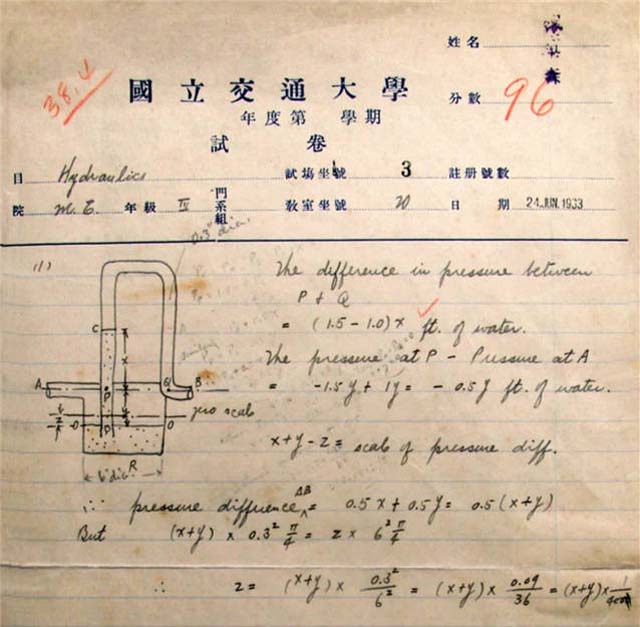 姓名
38.4
國立交通大學
分數 96
年度第 學期
試 卷
目 Hydraulics 試場坐號 3 註册號數
院 M.E. 年級 IV 門系組 教室坐號 20 日期 24 JUN 1933
0.3" dia.
(1) The difference in pressure between
P & Q
= (1.5 - 1.0) x ft. of water.
The pressure at P - Pressure at A
= -1.5y + 1y = - 0.5y ft. of water.
x+y-z = scale of pressure diff.
C
x
A P Q B
y
zero scale
z O O
D
R
6" dia.
∴ pressure difference AB = 0.5x + 0.5y = 0.5 (x+y)
But (x+y) × 0.3² π/4 = z × 6² π/4
∴ z = (x+y) × 0.3²/6² = (x+y) × 0.09/36 = (x+y) × 1/400